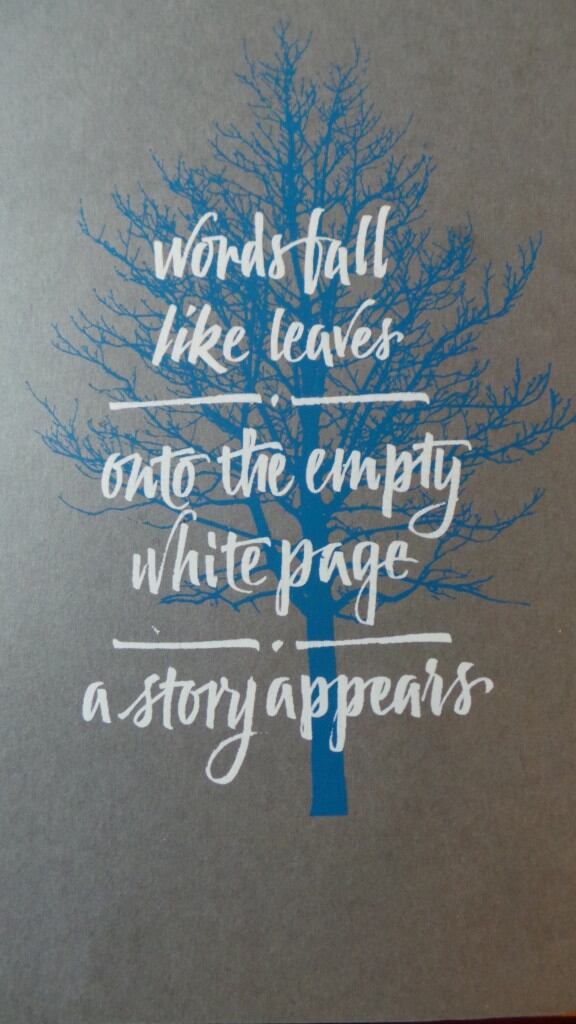 words fall
like leaves
onto the empty
white page
a story appears